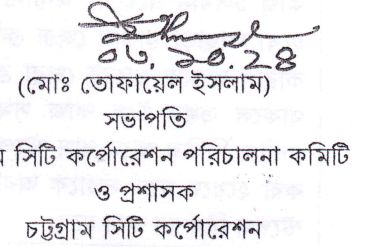 ০৬.১০.২৪
(মোঃ তোফায়েল ইসলাম)
সভাপতি
ম সিটি কর্পোরেশন পরিচালনা কমিটি
ও প্রশাসক
চট্টগ্রাম সিটি কর্পোরেশন